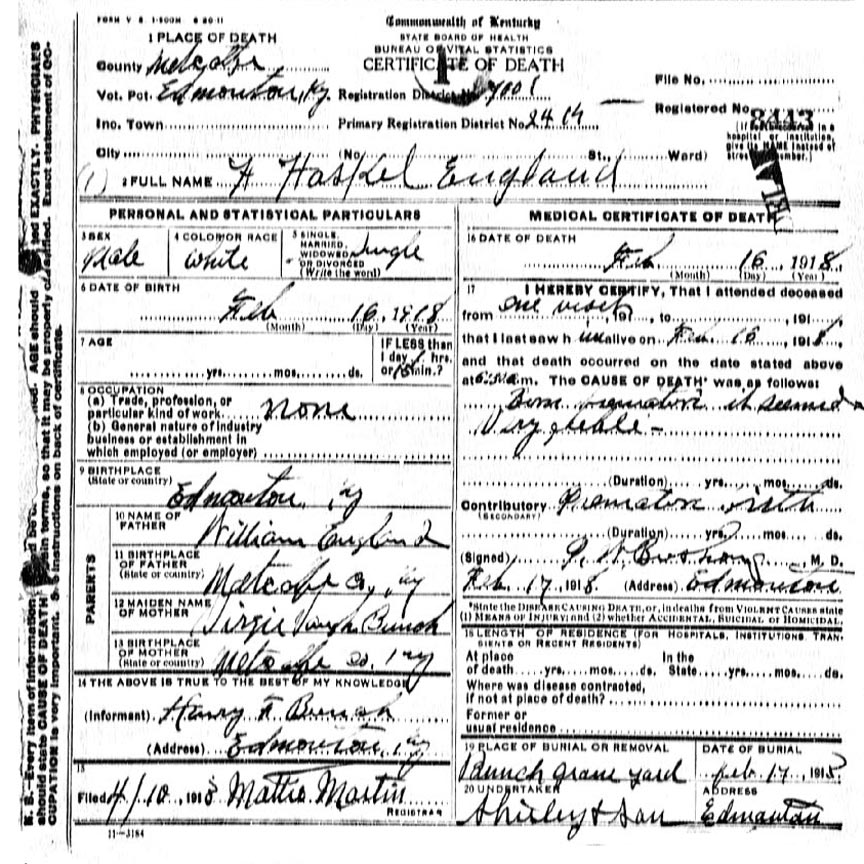 FORM V. S. 1-500M 6 20-11
Commonwealth of Kentucky
STATE BOARD OF HEALTH
BUREAU OF VITAL STATISTICS
CERTIFICATE OF DEATH
1 PLACE OF DEATH
County Metcalfe
Vot. Pct. Edmonton, Ky. Registration District No. 7001
File No.
Inc. Town Primary Registration District No. 2414
Registered No. 8443
(If death occurred in a hospital or institution, give its NAME instead of street and number.)
City (No. St., Ward)
(1) 2 FULL NAME H Haskel England
PERSONAL AND STATISTICAL PARTICULARS
3 SEX Male
4 COLOR OR RACE White
5 SINGLE, MARRIED, WIDOWED OR DIVORCED (Write the word) Single
6 DATE OF BIRTH
Feb 16, 1918
(Month) (Day) (Year)
7 AGE
yrs. mos. ds.
IF LESS than 1 day, hrs. or 15 min.?
8 OCCUPATION
(a) Trade, profession, or
particular kind of work none
(b) General nature of industry
business or establishment in
which employed (or employer)
9 BIRTHPLACE
(State or country) Edmonton, Ky
PARENTS
10 NAME OF FATHER William England
11 BIRTHPLACE OF FATHER (State or country) Metcalfe Co, Ky
12 MAIDEN NAME OF MOTHER Virgie Bunch
13 BIRTHPLACE OF MOTHER (State or country) Metcalfe Co. Ky
14 THE ABOVE IS TRUE TO THE BEST OF MY KNOWLEDGE
(Informant) Henry A Bunch
(Address) Edmonton, Ky
15
Filed 4/10, 1918 Mattie Martin
REGISTRAR
11-3184
MEDICAL CERTIFICATE OF DEATH
16 DATE OF DEATH
Feb 16, 1918
(Month) (Day) (Year)
17 I HEREBY CERTIFY, That I attended deceased
from one visit, 191, to, 191,
that I last saw him alive on Feb. 16, 1918,
and that death occurred on the date stated above
at m. The CAUSE OF DEATH* was as follows:
Born premature it seemed
Very feeble -
(Duration) yrs. mos. ds.
Contributory Premature birth
(SECONDARY)
(Duration) yrs. mos. ds.
(Signed) P. W. Bushong, M. D.
Feb. 17, 1918 (Address) Edmonton
*State the DISEASE CAUSING DEATH, or, in deaths from VIOLENT CAUSES state
(1) MEANS OF INJURY; and (2) whether ACCIDENTAL, SUICIDAL or HOMICIDAL.
18 LENGTH OF RESIDENCE (FOR HOSPITALS, INSTITUTIONS, TRAN-
SIENTS OR RECENT RESIDENTS)
At place In the
of death yrs. mos. ds. State yrs. mos. ds.
Where was disease contracted,
if not at place of death?
Former or
usual residence
19 PLACE OF BURIAL OR REMOVAL
Bunch grave yard
DATE OF BURIAL
Feb. 17, 1918
20 UNDERTAKER
Shirley & Son
ADDRESS
Edmonton
N. B.—Every item of information should be AGE should be stated EXACTLY. PHYSICIANS
should state CAUSE OF DEATH in plain terms, so that it may be properly classified. Exact statement of OC-
CUPATION is very important. See instructions on back of certificate.